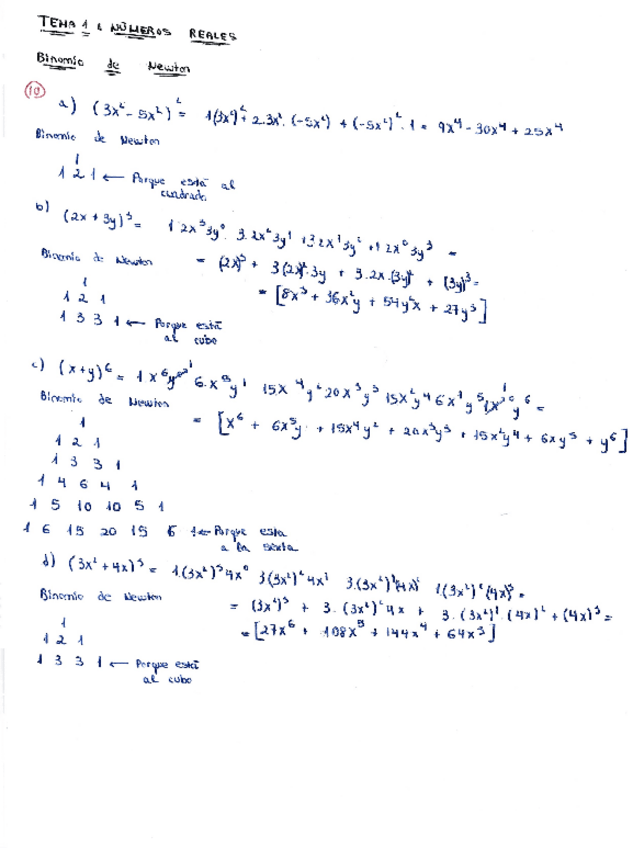 TEMA 1: NÚMEROS REALES
Binomio de Newton
10
a) (3x² - 5x²)² = 1(3x²)² + 2·3x²·(-5x²) + (-5x²)²·1 = 9x⁴ - 30x⁴ + 25x⁴
Binomio de Newton
1
1 2 1 ← Porque está al cuadrado
b) (2x + 3y)³ = 1 2x³ 3y⁰ 3·2x² 3y¹ + 3 2x¹ 3y² + 1 2x⁰ 3y³ =
Binomio de Newton = (2x)³ + 3(2x)²·3y + 3·2x·(3y)² + (3y)³ =
1
= [8x³ + 36x²y + 54y²x + 27y³]
1 2 1
1 3 3 1 ← Porque está al cubo
c) (x+y)⁶ = 1x⁶y⁰ 6·x⁵y¹ 15x⁴y² 20x³y³ 15x²y⁴ 6x¹y⁵ 1x⁰y⁶ =
Binomio de Newton = [x⁶ + 6x⁵y + 15x⁴y² + 20x³y³ + 15x²y⁴ + 6xy⁵ + y⁶]
1
1 2 1
1 3 3 1
1 4 6 4 1
1 5 10 10 5 1
1 6 15 20 15 6 1 ← Porque esta a la sexta
d) (3x² + 4x)³ = 1·(3x²)³ 4x⁰ 3(3x²)² 4x¹ 3·(3x²)¹(4x)² 1(3x²)⁰(4x)³ =
Binomio de Newton = (3x²)³ + 3·(3x²)² 4x + 3·(3x²)¹·(4x)² + (4x)³ =
1
= [27x⁶ + 108x⁵ + 144x⁴ + 64x³]
1 2 1
1 3 3 1 ← Porque está al cubo